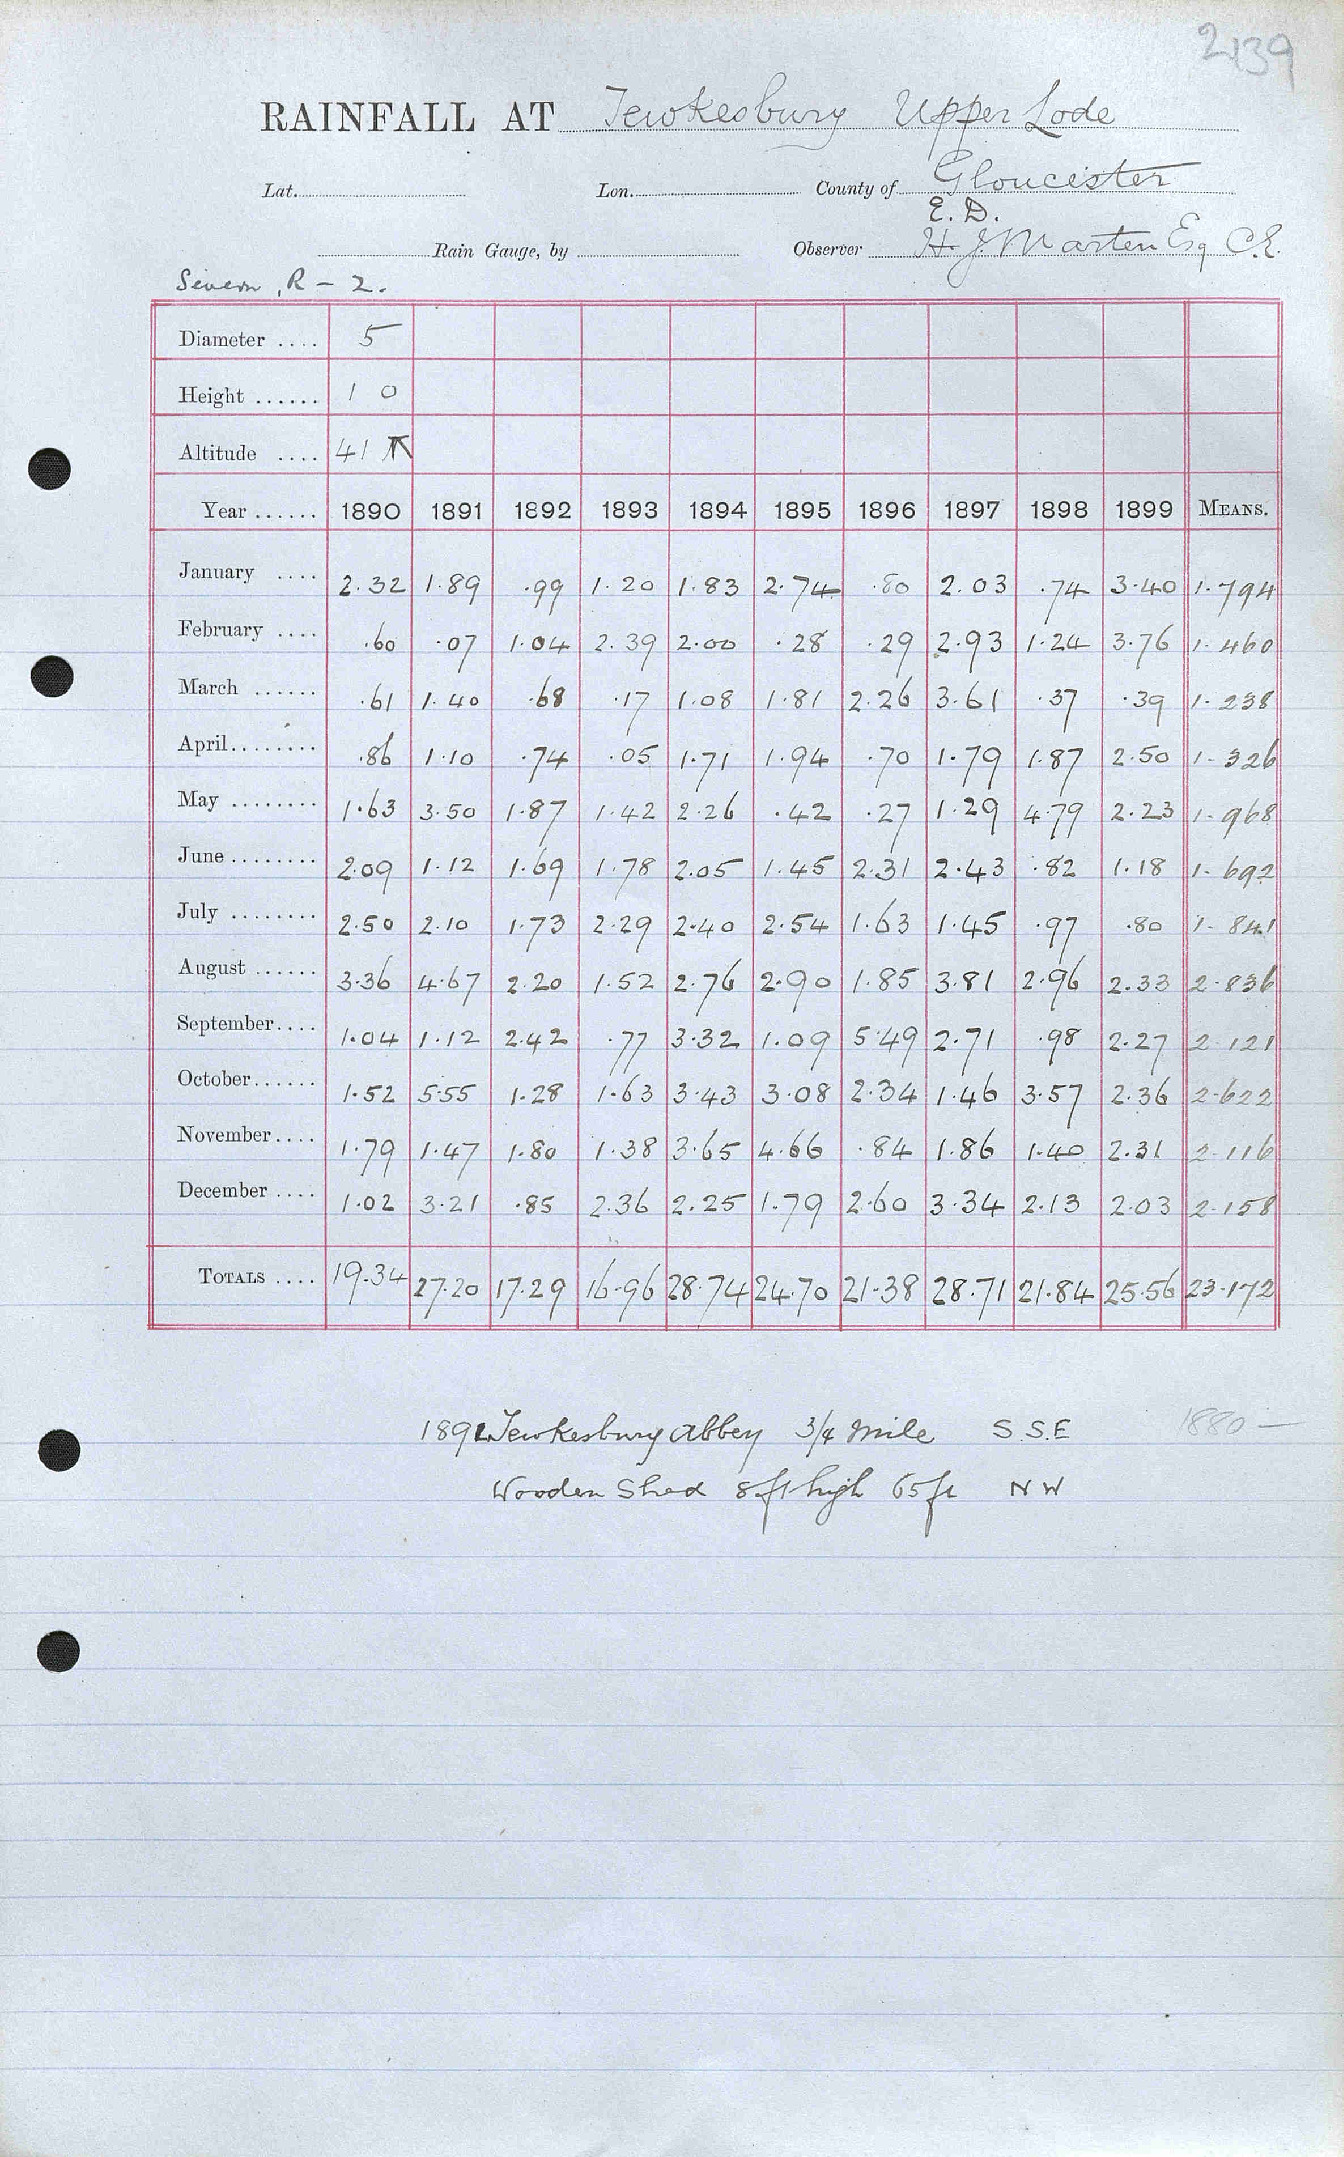 2139
RAINFALL AT Tewkesbury Upper Lode
Lat. Lon. County of Gloucester
E. D.
Rain Gauge, by Observer H. J. Marten Esq C.E.
Severn, R – 2.
Diameter .... 5
Height ...... 1 0
Altitude .... 41
Year ...... 1890 1891 1892 1893 1894 1895 1896 1897 1898 1899 MEANS.
January .... 2.32 1.89 .99 1.20 1.83 2.74 .80 2.03 .74 3.40 1.794
February .... .60 .07 1.04 2.39 2.00 .28 .29 2.93 1.24 3.76 1.460
March ...... .61 1.40 .68 .17 1.08 1.81 2.26 3.61 .37 .39 1.238
April........ .86 1.10 .74 .05 1.71 1.94 .70 1.79 1.87 2.50 1.326
May ........ 1.63 3.50 1.87 1.42 2.26 .42 .27 1.29 4.79 2.23 1.968
June ........ 2.09 1.12 1.69 1.78 2.05 1.45 2.31 2.43 .82 1.18 1.692
July ........ 2.50 2.10 1.73 2.29 2.40 2.54 1.63 1.45 .97 .80 1.841
August ...... 3.36 4.67 2.20 1.52 2.76 2.90 1.85 3.81 2.96 2.33 2.836
September.... 1.04 1.12 2.42 .77 3.32 1.09 5.49 2.71 .98 2.27 2.121
October...... 1.52 5.55 1.28 1.63 3.43 3.08 2.34 1.46 3.57 2.36 2.622
November.... 1.79 1.47 1.80 1.38 3.65 4.66 .84 1.86 1.40 2.31 2.116
December .... 1.02 3.21 .85 2.36 2.25 1.79 2.60 3.34 2.13 2.03 2.158
TOTALS .... 19.34 27.20 17.29 16.96 28.74 24.70 21.38 28.71 21.84 25.56 23.172
1892 Tewkesbury Abbey 3/4 mile S.S.E 1880 –
Wooden Shed 8ft high 65ft NW